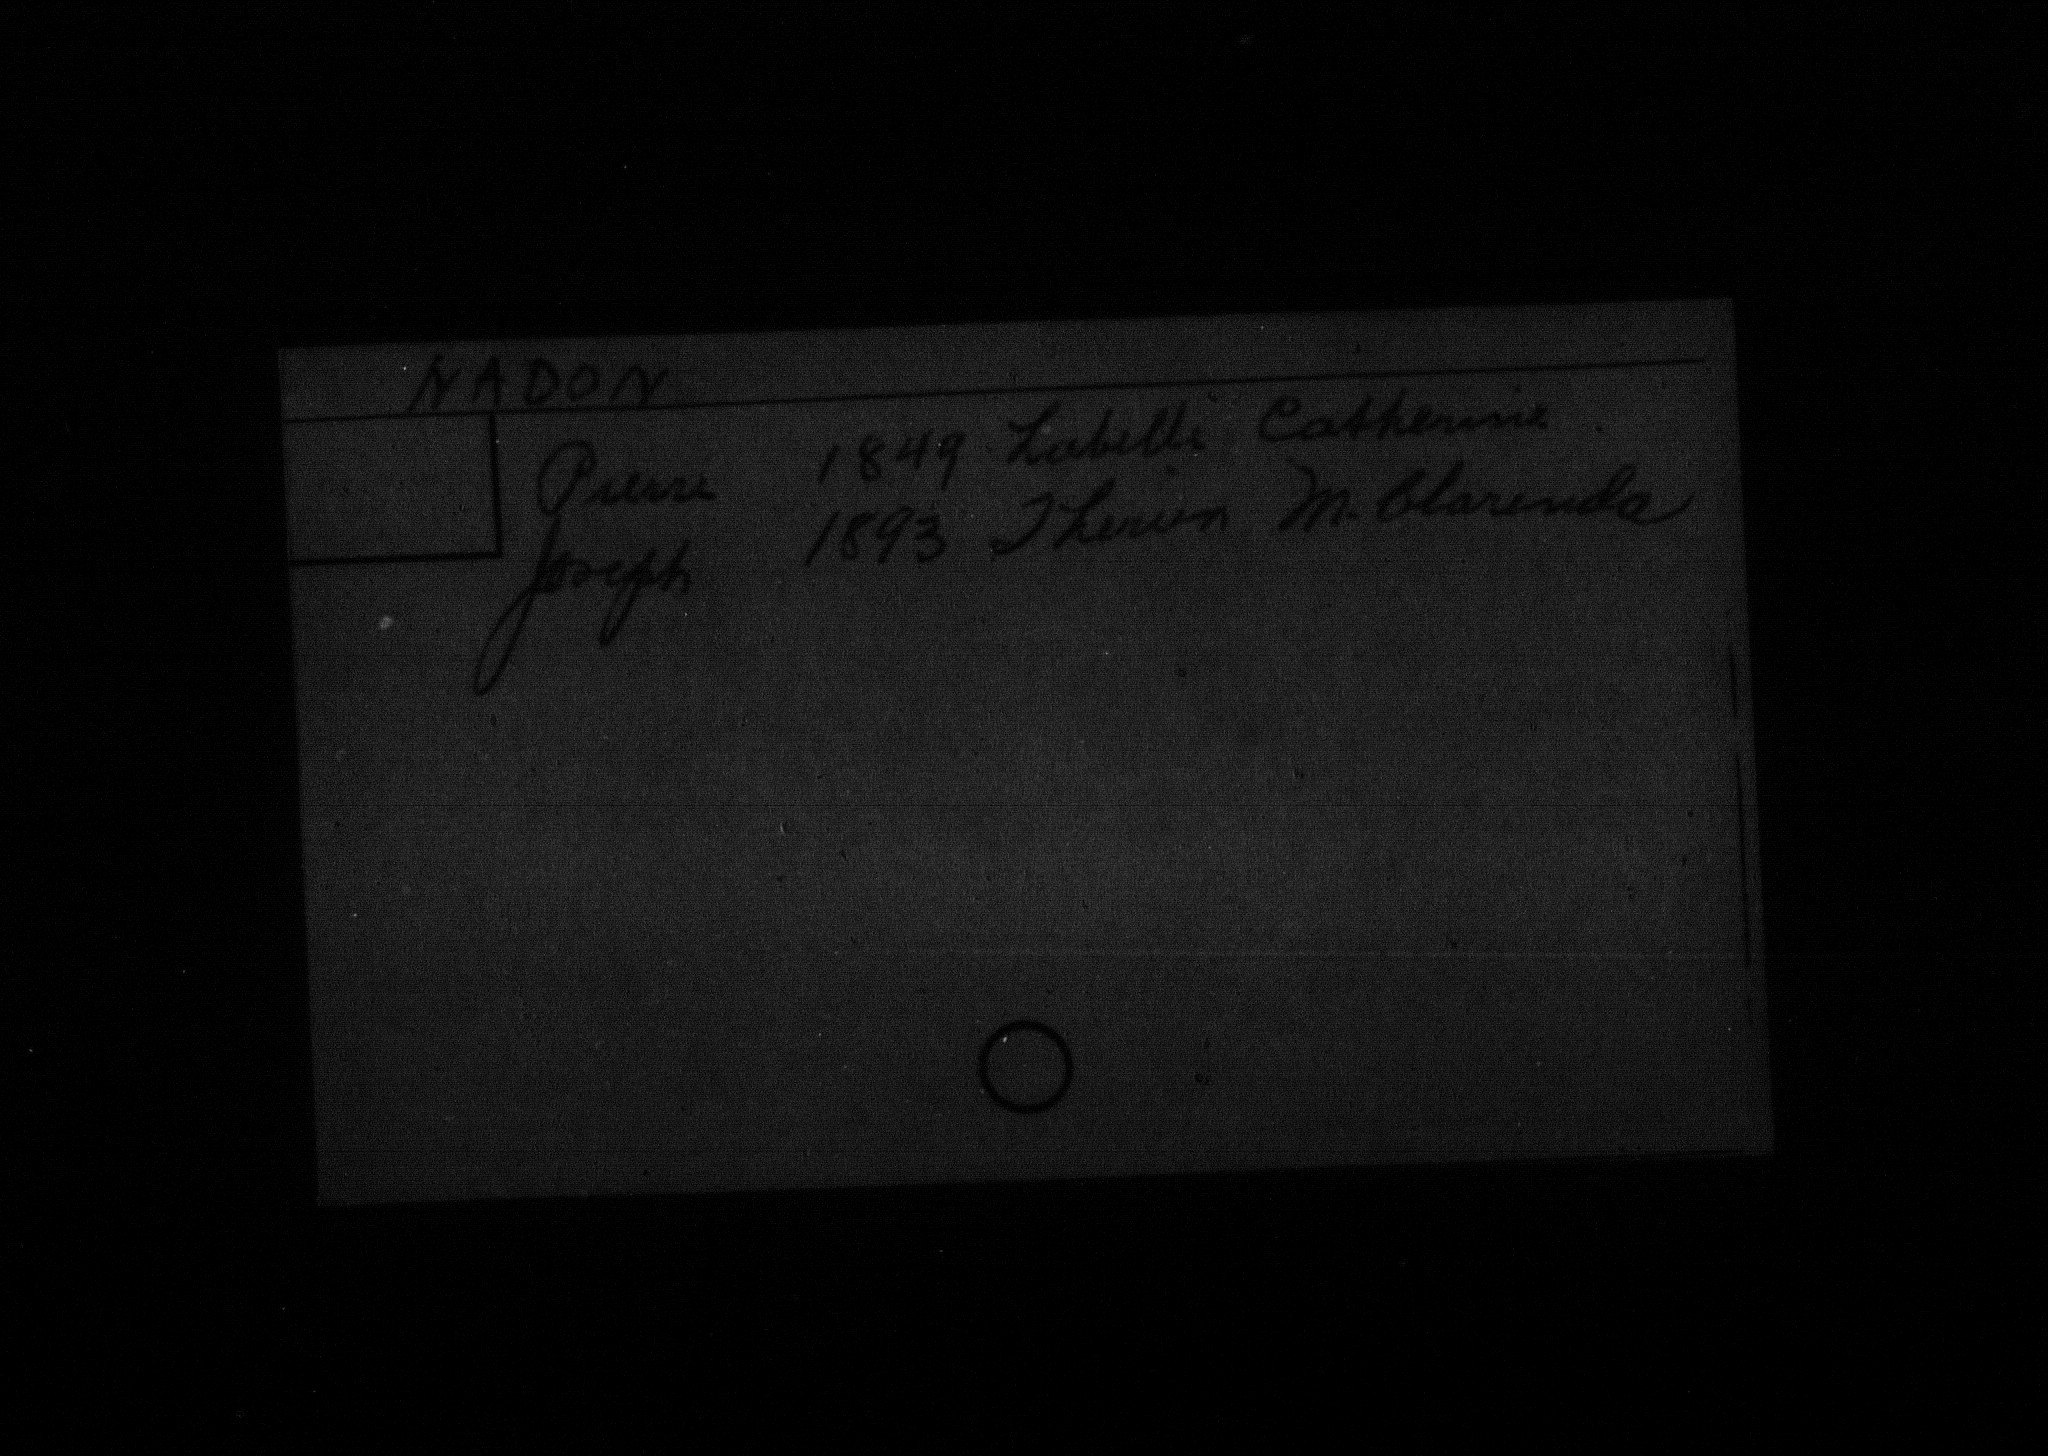 NADON
Pierre 1849 Labelle Catherine
Joseph 1893 Therien M. Clarenda